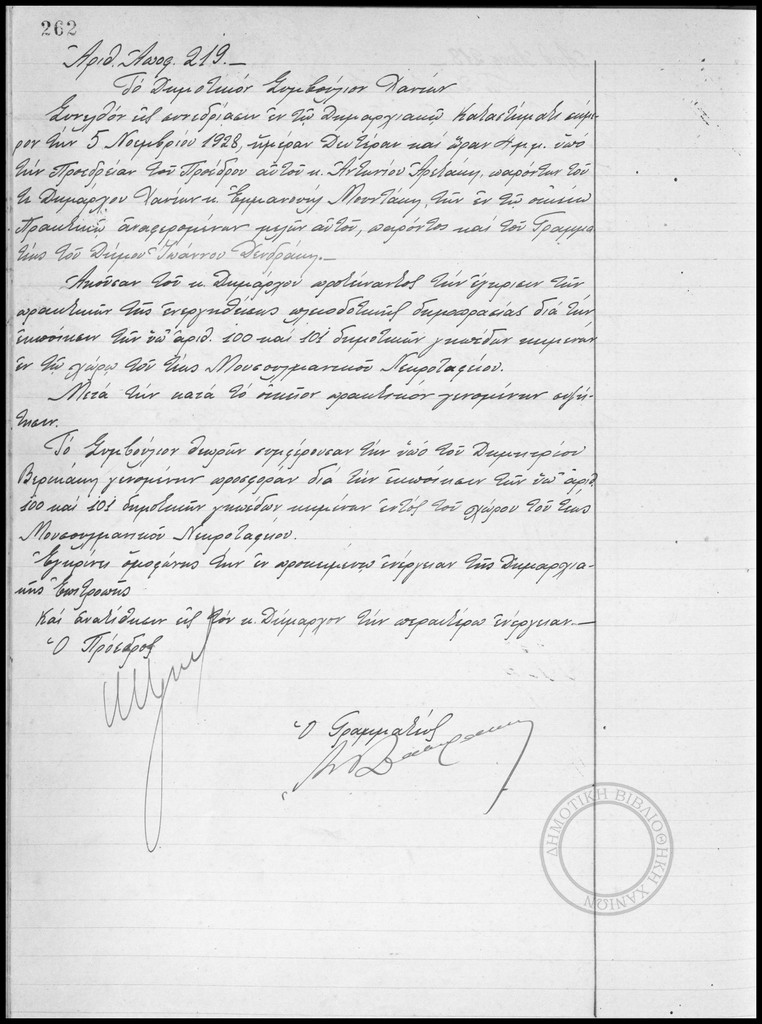 262
Ἀριθ. Ἀποφ. 219.—
Τὸ Δημοτικὸν Συμβούλιον Χανίων
Συνελθὸν εἰς συνεδρίασιν ἐν τῷ Δημαρχιακῷ Καταστήματι σήμε-
ρον τὴν 5 Νοεμβρίου 1928, ἡμέραν Δευτέραν καὶ ὥραν μ.μ. ὑπὸ
τὴν Προεδρείαν τοῦ Προέδρου αὐτοῦ κ. Ἀντωνίου παρόντων τοῦ
τε Δημάρχου Χανίων κ. Ἐμμανουὴλ Μουντάκη, τῶν ἐν τῷ οἰκείῳ
Πρακτικῷ ἀναφερομένων μελῶν αὐτοῦ, παρόντος καὶ τοῦ Γραμμα
τέως τοῦ Δήμου Ἰωάννου Δενδράκη.—
Ἀκοῦσαν τοῦ κ. Δημάρχου προτείναντος τὴν ἔγκρισιν τῶν
πρακτικῶν τῆς ἐνεργηθείσης πλειοδοτικῆς δημοπρασίας διὰ τὴν
ἐκποίησιν τῶν ὑπ' ἀριθ. 100 καὶ 101 δημοτικῶν γηπέδων κειμένων
ἐν τῷ χώρῳ τοῦ τέως Μουσουλμανικοῦ Νεκροταφείου.
Μετὰ τὴν κατὰ τὸ οἰκεῖον πρακτικὸν γενομένην συζή-
τησιν.
Τὸ Συμβούλιον θεωρῶν συμφέρουσαν τὴν ὑπὸ τοῦ Δημητρίου
Βερικάκη γενομένην προσφορὰν διὰ τὴν ἐκποίησιν τῶν ὑπ' ἀριθ.
100 καὶ 101 δημοτικῶν γηπέδων κειμένων ἐντὸς τοῦ χώρου τοῦ τέως
Μουσουλμανικοῦ Νεκροταφείου.
Ἐγκρίνει ὁμοφώνως τὴν ἐν προκειμένῳ ἐνέργειαν τῆς Δημαρχια-
κῆς Ἐπιτροπῆς
Καὶ ἀνατίθησιν εἰς τὸν κ. Δήμαρχον τὴν περαιτέρω ἐνέργειαν.—
Ὁ Πρόεδρος
Ὁ Γραμματεὺς
ΔΗΜΟΤΙΚΗ ΒΙΒΛΙΟΘΗΚΗ ΧΑΝΙΩΝ